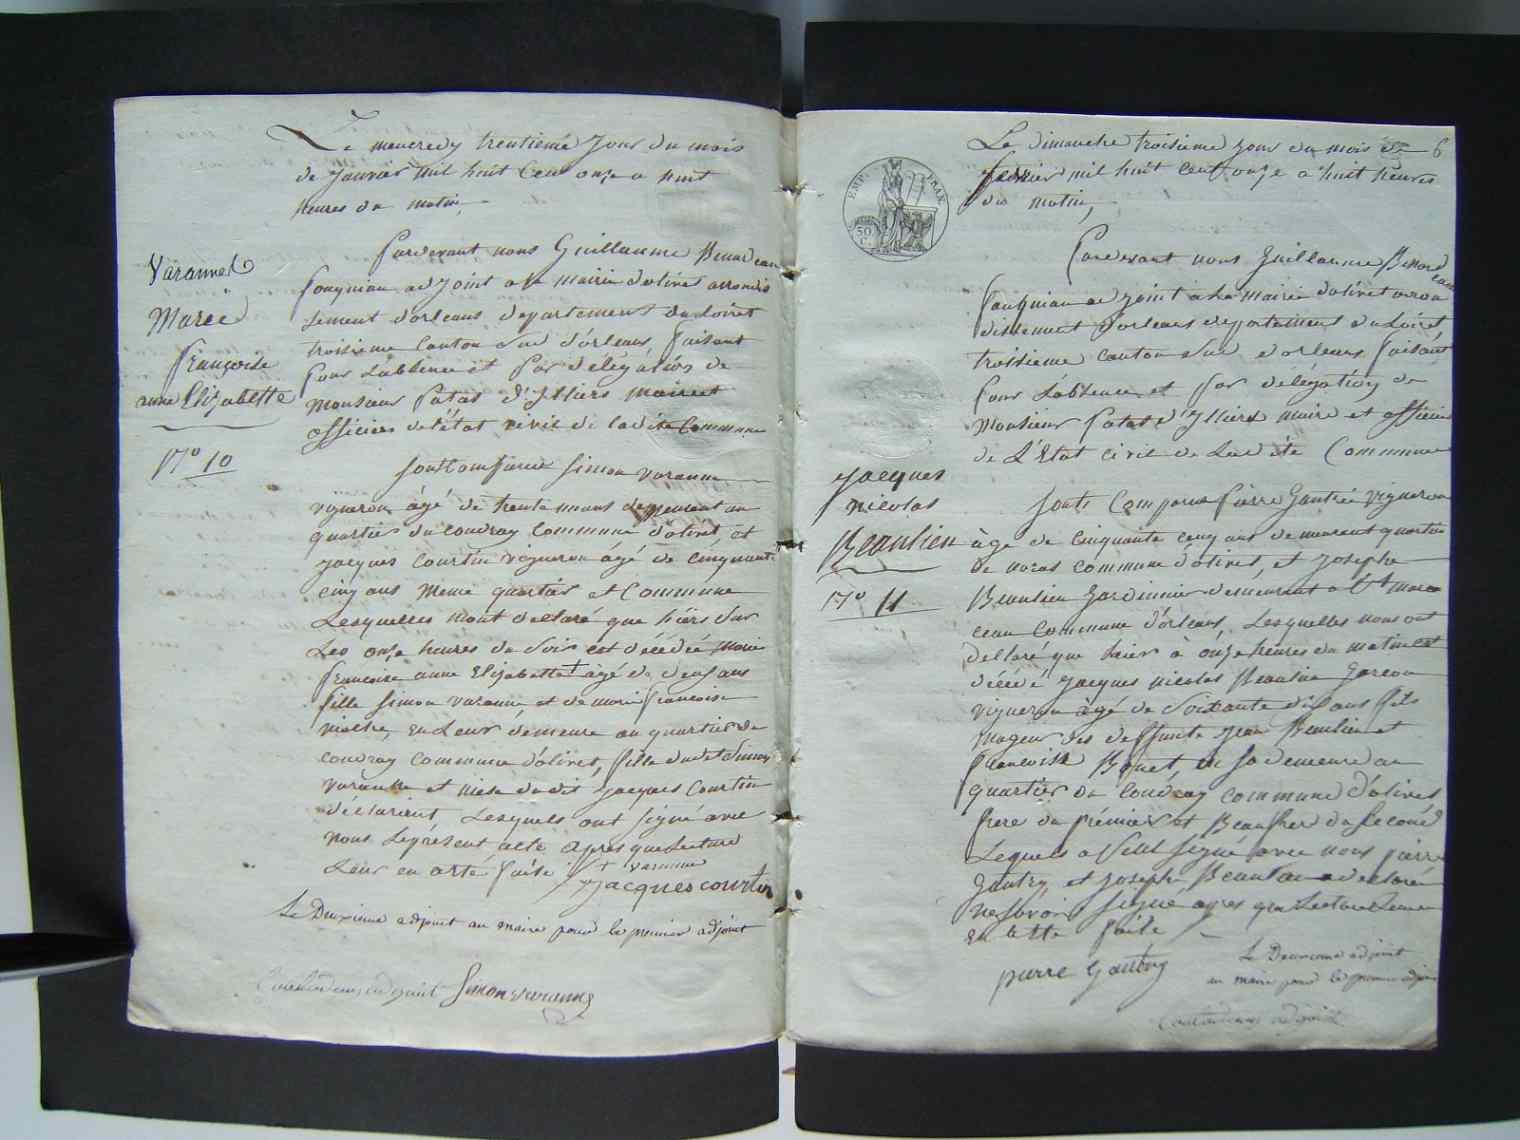 Le mercredy trentième Jour du mois
de Janvier mil huit Cent onze a huit
heures du matin,
Pardevant nous Guillaume Benardeau
fougniau adjoint a la mairie d'olivet arrondis
sement d'orleans departement du Loiret
troisieme Canton Sud d'orleans, faisant
Pour Labsence et Par délégation de
Monsieur Patas d'Illiers maire et
officier de l'état civil de ladite Commune
Varanne
Marie
françoise
anne Elizabette
N° 10
Sont Comparu Simon varanne
vigneron âgé de trente demeurant au
quartier du Coudray Commune d'olivet, et
jacques Courtin vigneron âgé de Cinquante
Cinq ans meme quartier et Commune
Lesquelles mont declaré que hiers Sur
Les onze heures du Soir est décédée marie
françoise anne Elizabette + âgé de deux ans
fille Simon varanne et de marie francoise
en Leur démeure au quartier du
coudray Commune d'olivet, fille dudit Simon
varanne et niese dudit jacques Courtin
déclarant Lesquels ont signé avec
nous Le présent acte après que Lecture
Leur en a été faite + varanne
jacques courtin
Le Deuxieme adjoint au maire pour le premier adjoint
adjoint Simon varanne
6
EMP. FRAN.
50
C.
Le dimanche troisieme jour du mois de
fevrier mil huit cent onze a huit heures
du matin,
Pardevant nous Guillaume Benardeau
faugniau adjoint a La mairie d'olivet aron
dissement d'orleans departement du Loiret,
troisieme canton Sud d'orleans faisant
Pour L'absence et Par délégation de
Monsieur Patas d'Illiers maire et officier
de L'Etat Civil de Ladite Commune
jacques
nicolas
Beaulieu
N° 11
Sont Comparu Pierre Gautrie vigneron
âge de Cinquante cinq ans demeurant quartier
de noras commune d'olivet, et josephe
Beaulieu Gardinier demeurant a St marc
commune d'orleans, Lesquelles nous ont
declaré que hier à onze heures du matin est
décédé jacques nicolas Beaulieu Garcon
vigneron âgé de Soixante dix ans fils
mageur des deffunts jean Beaulieu et
francoise Bouet, en Sa demeure au
quartier du Coudray commune d'olivet
frere du prémier et Beaufrer du Second
Lequels a Seul Signé avec nous pierre
Gautry, et joseph Beaulieu a declaré
ne Savoir Signe apres que Lecture Leur
en a été faite
pierre Gautry
Le Deuxieme adjoint
au maire pour le premier adjoint
adjoint